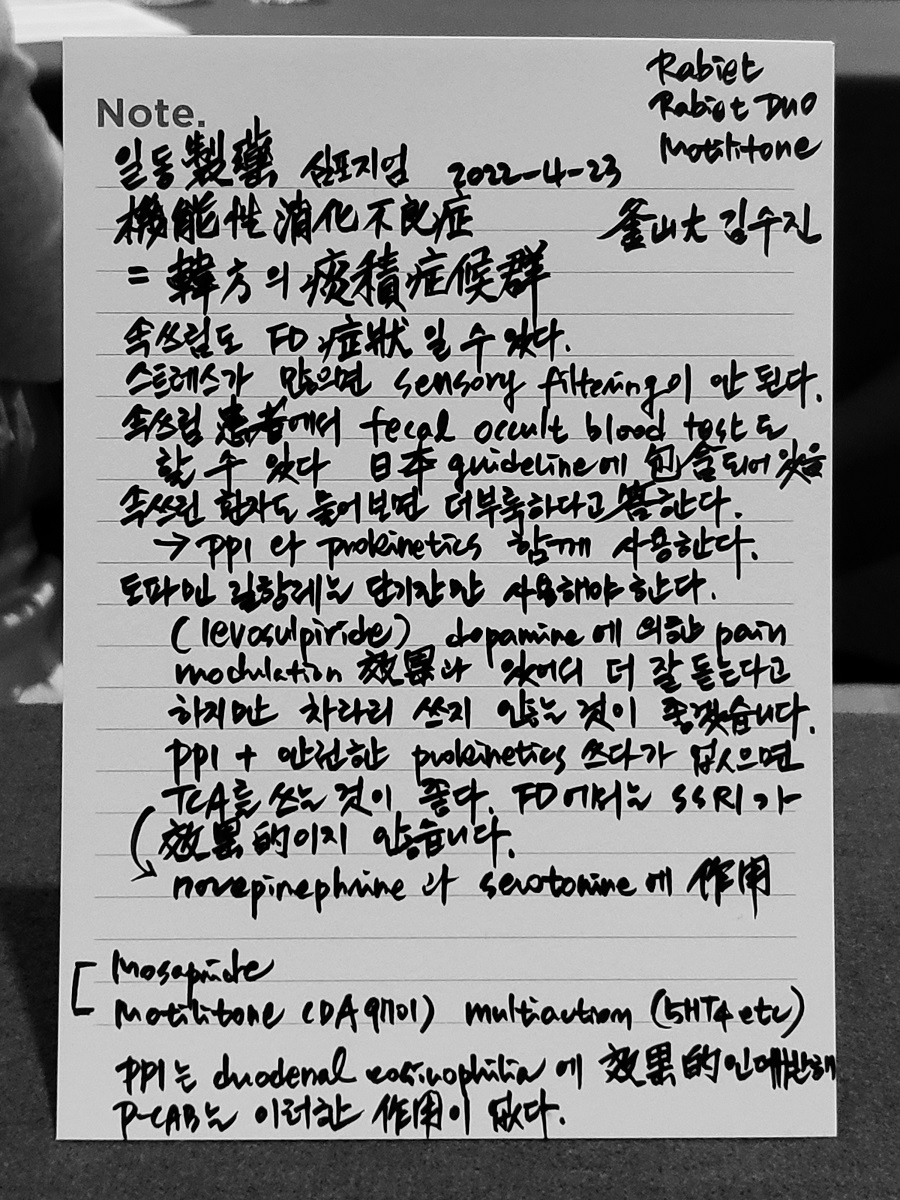 Rabiet
Rabiet DUO
Motilitone
Note.
일동製藥 심포지엄 2022-4-23
機能性消化不良症 釜山大 김수진
= 韓方의 痰積症候群
속쓰림도 FD 症狀일 수 있다.
스트레스가 많으면 sensory filtering이 안 된다.
속쓰림 患者에서 fecal occult blood test도
할 수 있다 日本 guideline에 包含되어 있음
속쓰린 환자도 물어보면 더부룩하다고 答한다.
→ PPI와 prokinetics 함께 사용한다.
도파민 길항제는 단기간만 사용해야 한다.
(levosulpiride) dopamine에 의한 pain
modulation 效果가 있어서 더 잘 듣는다고
하지만 차라리 쓰지 않는 것이 좋겠습니다.
PPI + 안전한 prokinetics 쓰다가 없으면
TCA를 쓰는 것이 좋다. FD에서는 SSRI가
效果的이지 않습니다.
norepinephrine과 serotonine에 作用
Mosapride
Motilitone (DA9701) multiaction (5HT4 etc)
PPI는 duodenal eosinophilia에 效果的인데 반해
P-CAB는 이러한 作用이 없다.